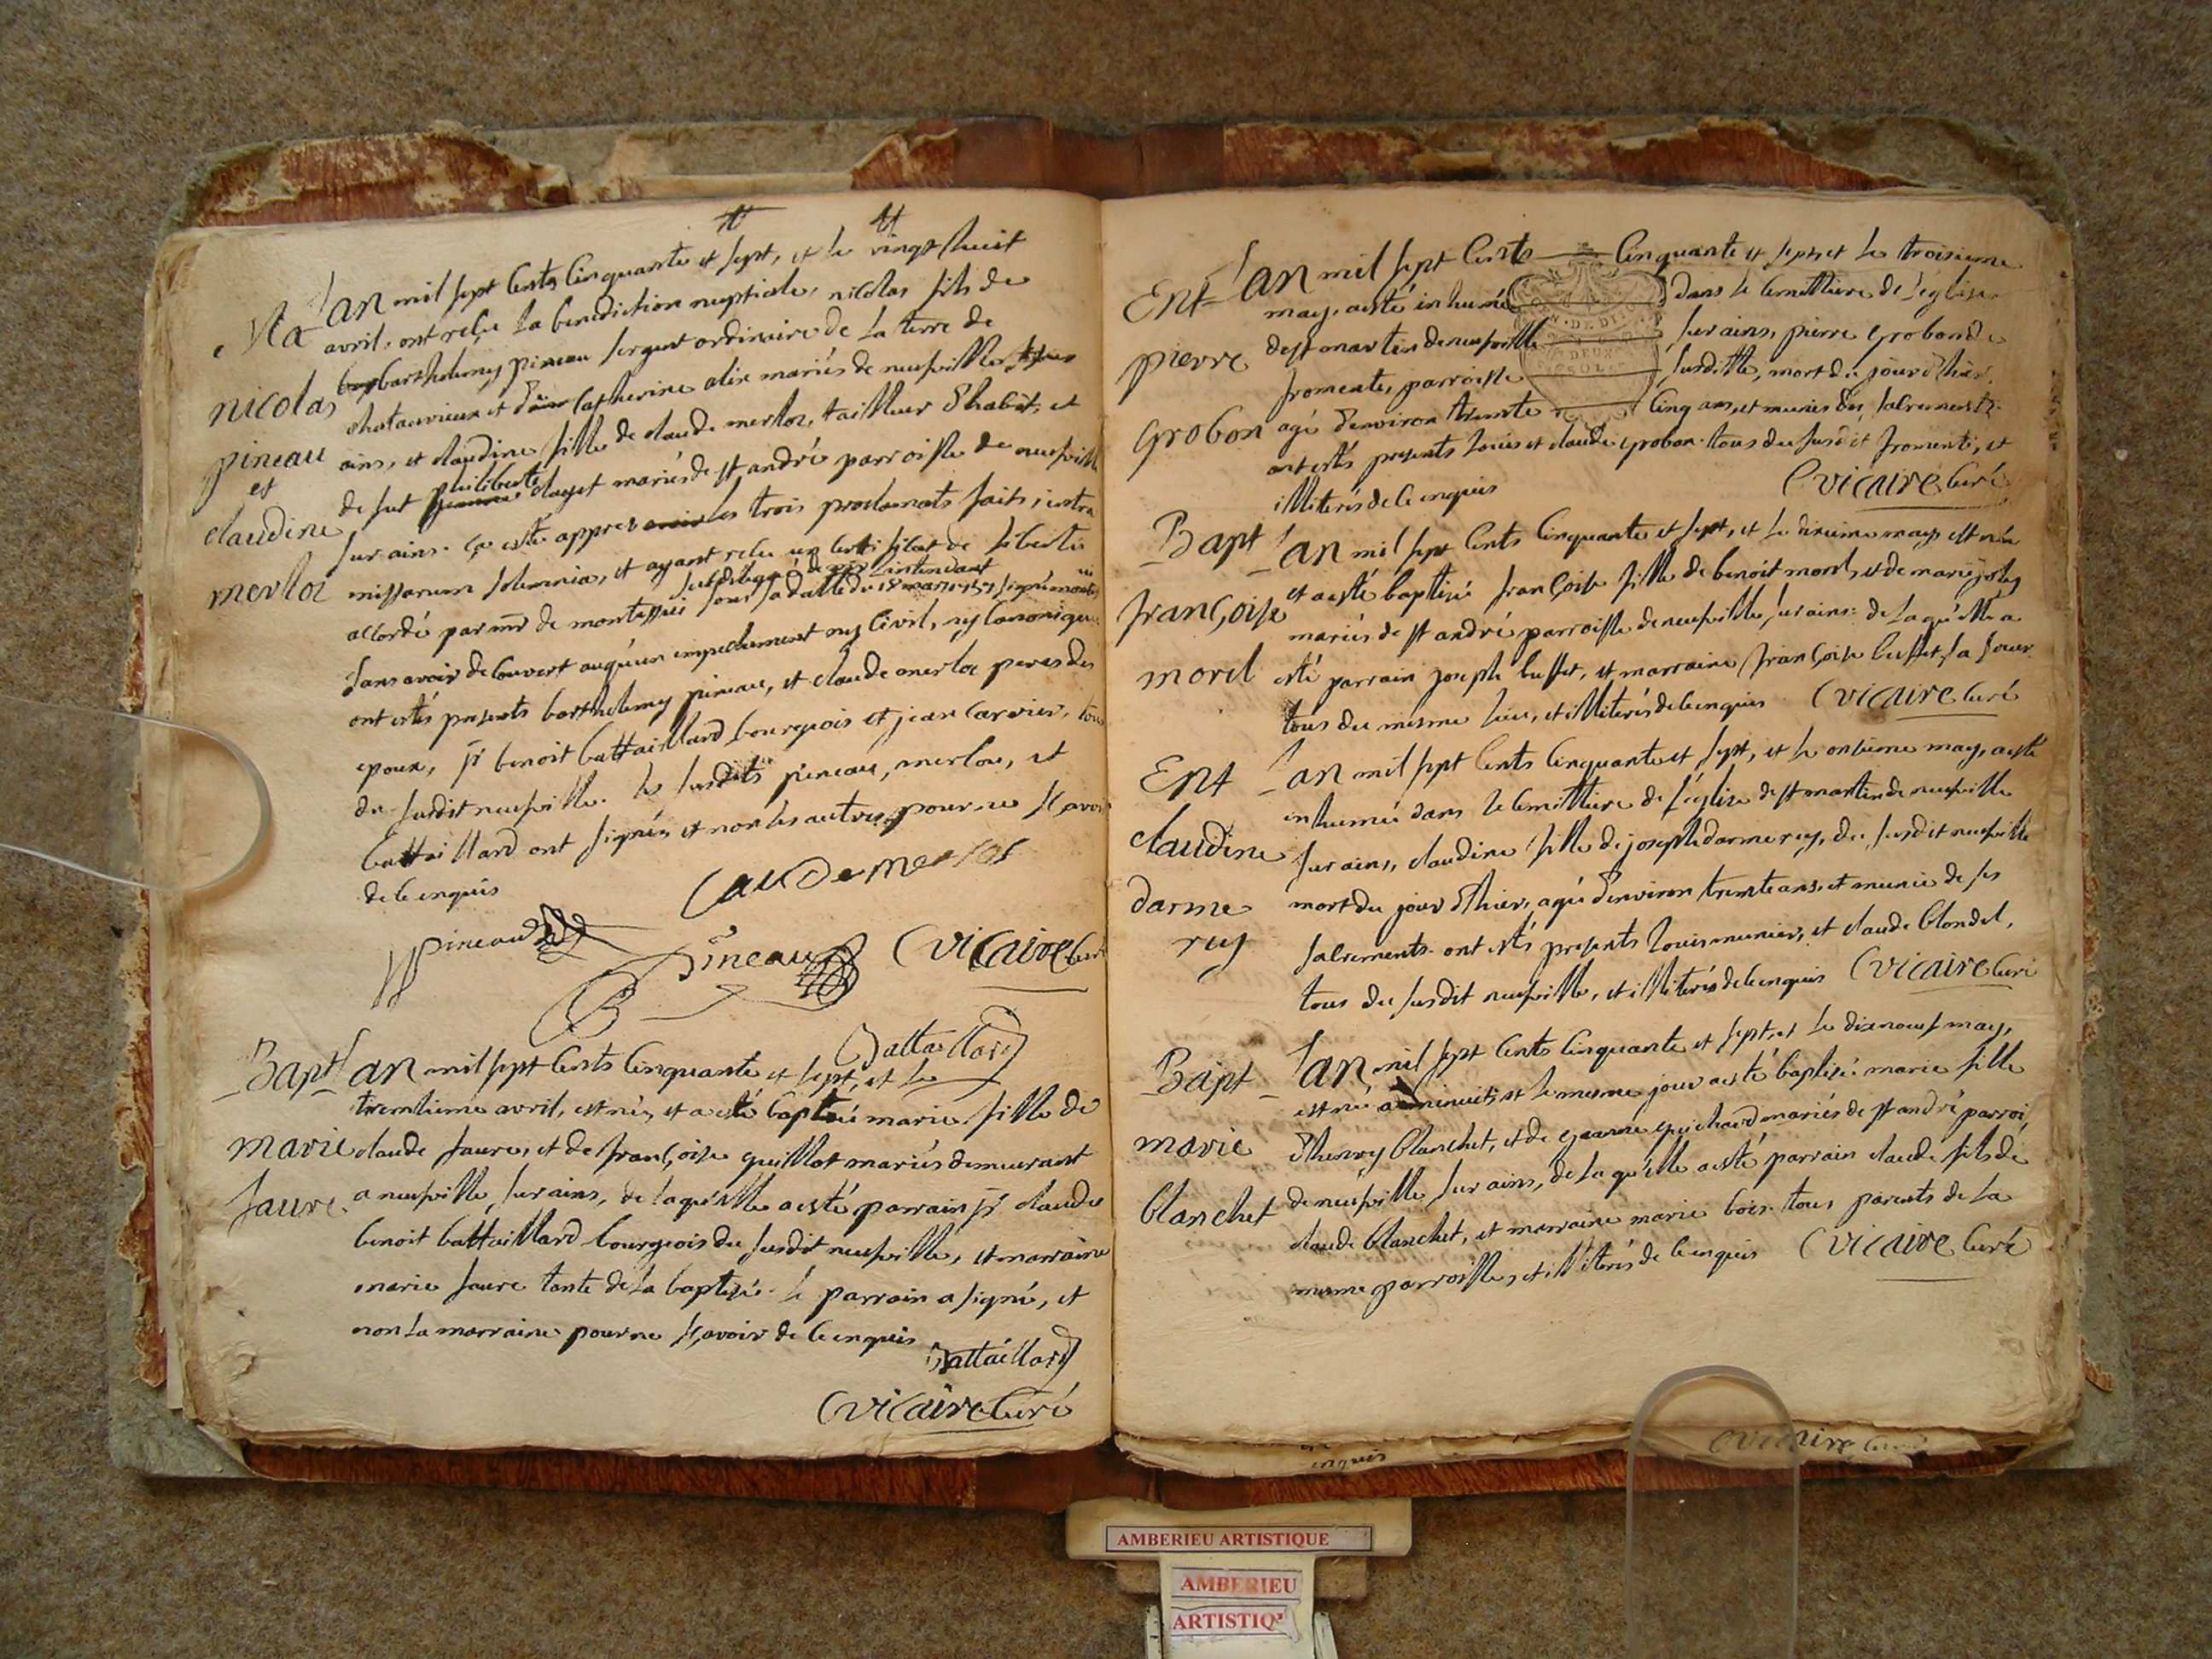 Ma
nicolas
pineau
et
claudine
merloz
L'an mil sept cents cinquante et sept, et le vingt huit
avril, ont reçu la benediction nuptiale, nicolas fils de
barthelemy pineau sergent ordinaire de la terre de
chatauvieux et catherine alix mariés de neufville
ains, et claudine fille de claude merloz, tailleur d'habit, et
de fut philiberte clayet mariés de st andré parroisse de neufville
sur ains. ça esté appres les trois proclamats faits, intra
missarum solemnia, et ayant reçu un certificat de liberté
subdelegué de mr l'intendant
accordé par mr de montessus sous sa datte du 18 mars 1757 signé
sans avoir decouvert auqu'un empechement ny civil, ny canonique
ont estés presents barthelemy pineau, et claude merloz peres des
epoux, sr benoit battaillard bourgeois et jean carrier, tous
du susdit neufville. les susdits pineau, merlou, et
battaillard ont signés et non les autres pour ne sçavoir
de ce enquis
Claude merloz
pineau
pineau
C vicaire curé
Battaillard
Bapt
marie
faure
L'an mil sept cents cinquante et sept, et le
trentieme avril, est née, et a esté baptisé marie fille de
claude faure, et de françoise guillot mariés demeurant
a neufville sur ains, de laqu'elle a esté parrain sr claude
benoit battaillard bourgeois du susdit neufville, et marraine
marie faure tante de la baptisée. le parrain a signé, et
non la marraine pour ne sçavoir de ce enquis
Battaillard
C vicaire Curé
Ent
pierre
grobon
L'an mil sept cents cinquante et sept, et le troisieme
may, a esté inhumé dans le cemittiere de l'eglise
de st martin de neufville sur ains, pierre grobon de
fromente, parroisse susditte, mort du jour d'hier,
agé d'environ trente cinq ans, et munis des sacrements.
ont estés presents louis et claude grobon tous du susdit fromente, et
illiterés de ce enquis
C vicaire Curé
Bapt
françoise
morel
L'an mil sept cents cinquante et sept, et le dixieme may, est née
et a esté baptisée françoise fille de benoit morel, et de marie joly
mariés de st andré parroisse de neufville sur ains. de laqu'elle a
esté parrain joseph buffet, et marraine françoise buffet, sa soeur
tous du mesme lieu, et illiterés de ce enquis C vicaire Curé
Ent
claudine
darme
rey
L'an mil sept cents cinquante et sept, et le onzieme may, a esté
inhumée dans le cemittiere de l'eglise de st martin de neufville
sur ains, claudine fille de joseph darmerey, du susdit neufville
mort du jour d'hier, agée d'environ trente ans, et munie de ses
sacrements. ont estés presents louis munier, et claude blondel,
tous du susdit neufville, et illiterés de ce enquis C vicaire Curé
Bapt
marie
blanchet
L'an mil sept cents cinquante et sept, et le dixneuf may,
est née a minuit, et le mesme jour a esté baptisée marie fille
d'henry blanchet, et de jeanne guichard mariés de st andré parroi,
de neufville sur ains, de laqu'elle a esté parrain claude fils de
claude blanchet, et marraine marie bois. tous parents de la
mesme parroisse, et illiterés de ce enquis C vicaire Curé
enquis
C vicaire
AMBERIEU ARTISTIQUE
AMBERIEU
ARTISTIQ